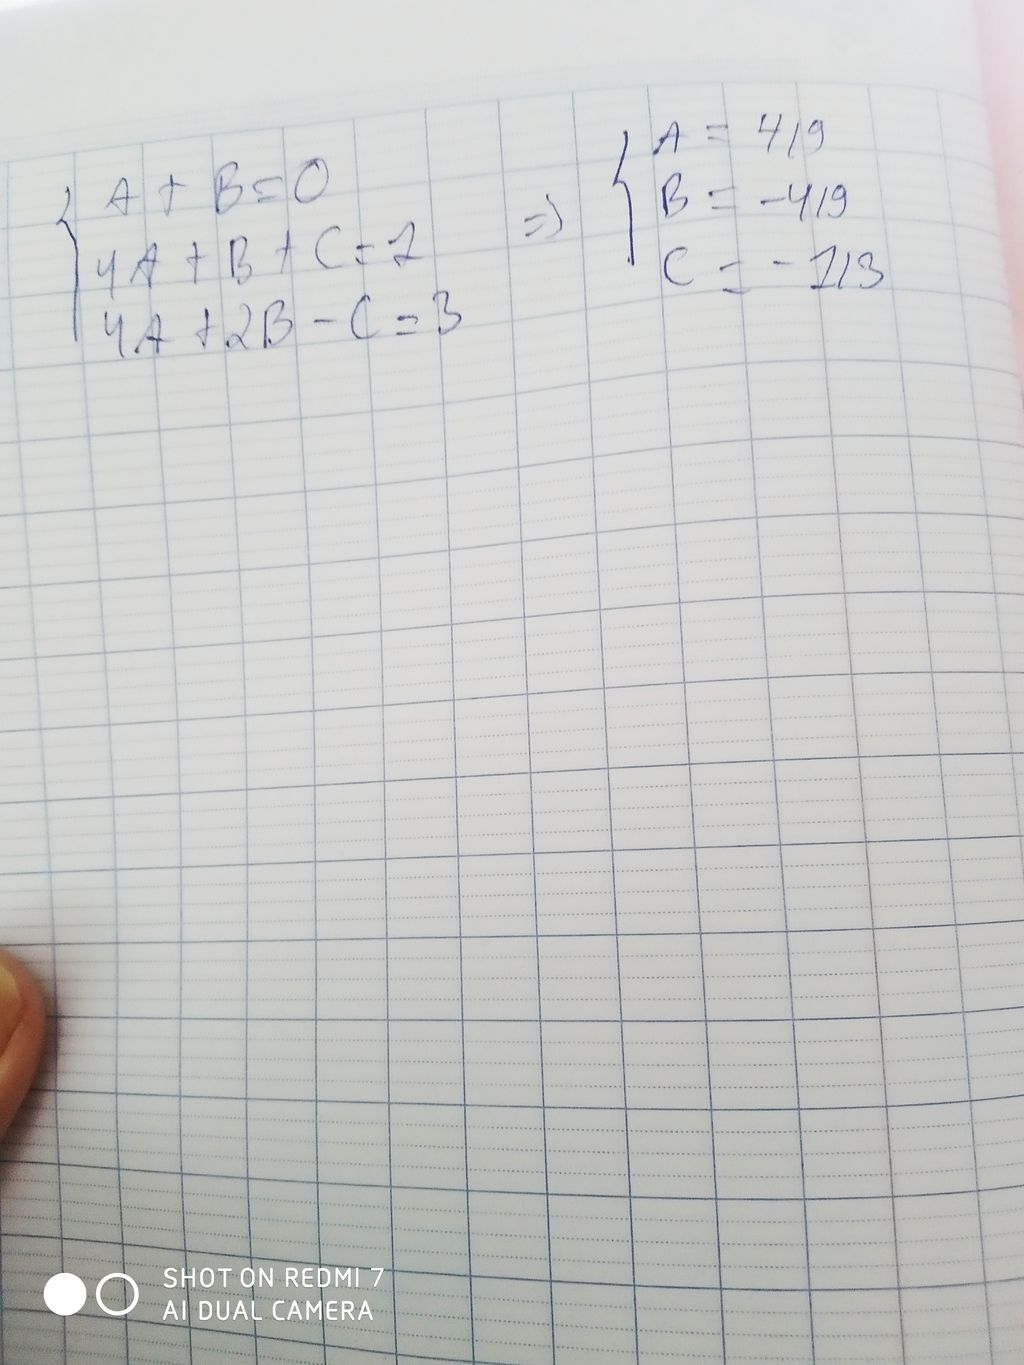 A + B = 0
4A + B + C = 1
4A + 2B - C = 3
=>
A = 4/9
B = -4/9
C = -1/3
SHOT ON REDMI 7
AI DUAL CAMERA